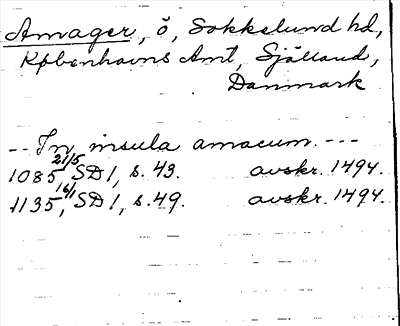 Amager, ö, Sokkelund hd,
Københavns Amt, Själland,
Danmark
-- In insula amacum. ---
1085 21/5, SD I, s. 43. avskr. 1494.
1135 16/1, SD I, s. 49. avskr. 1494.